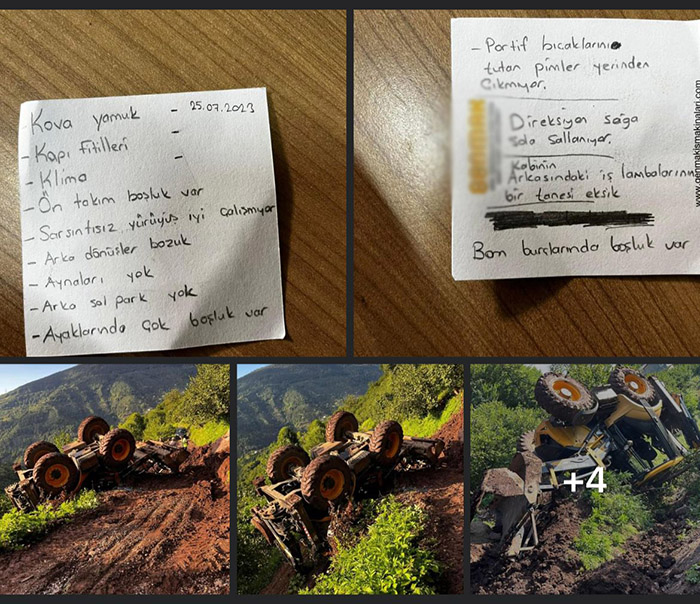 Kova yamuk - 25.07.2023
- Kapı Fitilleri -
- Klima -
- Ön takım boşluk var
- Sarsıntısız yürüyüş iyi çalışmıyor
- Arka dönüşler bozuk
- Aynaları yok
- Arka sol park yok
- Ayaklarında çok boşluk var
- Portif bıcaklarını
tutan pimler yerinden
Çıkmıyor.
Direksiyon sağa
sola sallanıyor.
Kabinin
Arkasındaki iş lambalarının
bir tanesi eksik
Bom burçlarında boşluk var
+4